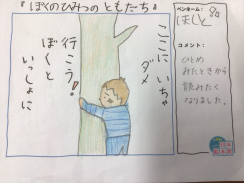 『ぼくのひみつのともだち』
ここに いちゃ
ダメ
行こう!
ぼくと
いっしょに
ペンネーム:
コメント:
ひとめ
みたときから
読みたく
なりました。